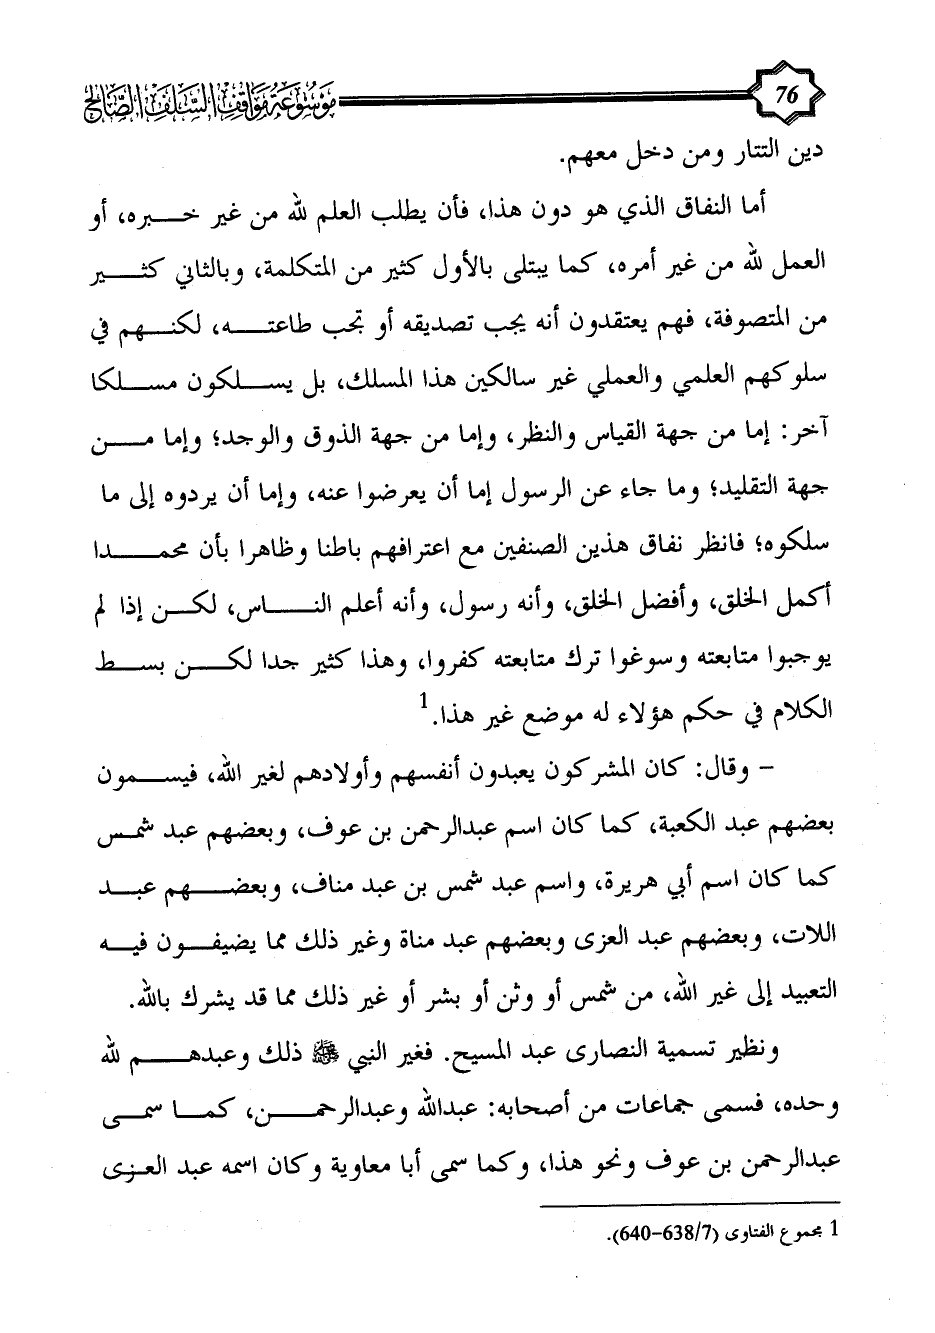 76 موسوعة مواقف السلف الصالح
دين التتار ومن دخل معهم.
أما النفاق الذي هو دون هذا، فأن يطلب العلم لله من غير خبره، أو
العمل لله من غير أمره، كما يبتلى بالأول كثير من المتكلمة، وبالثاني كثير
من المتصوفة، فهم يعتقدون أنه يجب تصديقه أو تجب طاعته، لكنهم في
سلوكهم العلمي والعملي غير سالكين هذا المسلك، بل يسلكون مسلكا
آخر: إما من جهة القياس والنظر، وإما من جهة الذوق والوجد؛ وإما من
جهة التقليد؛ وما جاء عن الرسول إما أن يعرضوا عنه، وإما أن يردوه إلى ما
سلكوه؛ فانظر نفاق هذين الصنفين مع اعترافهم باطنا وظاهرا بأن محمدا
أكمل الخلق، وأفضل الخلق، وأنه رسول، وأنه أعلم الناس، لكن إذا لم
يوجبوا متابعته وسوغوا ترك متابعته كفروا، وهذا كثير جدا لكن بسط
الكلام في حكم هؤلاء له موضع غير هذا.1
- وقال: كان المشركون يعبدون أنفسهم وأولادهم لغير الله، فيسمون
بعضهم عبد الكعبة، كما كان اسم عبدالرحمن بن عوف، وبعضهم عبد شمس
كما كان اسم أبي هريرة، واسم عبد شمس بن عبد مناف، وبعضهم عبد
اللات، وبعضهم عبد العزى وبعضهم عبد مناة وغير ذلك مما يضيفون فيه
التعبيد إلى غير الله، من شمس أو وثن أو بشر أو غير ذلك مما قد يشرك بالله.
ونظير تسمية النصارى عبد المسيح. فغير النبي ﷺ ذلك وعبدهم لله
وحده، فسمى جماعات من أصحابه: عبدالله وعبدالرحمن، كما سمى
عبدالرحمن بن عوف ونحو هذا، وكما سمى أبا معاوية وكان اسمه عبد العزى
1 مجموع الفتاوى (638/7-640).